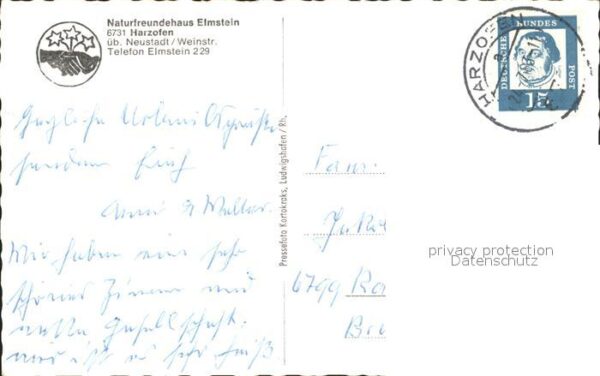 Naturfreundehaus Elmstein
6731 Harzofen
üb. Neustadt/Weinstr.
Telefon Elmstein 229
HARZOFEN
DEUTSCHE BUNDESPOST
15
Herzliche Urlaubsgrüße
senden Euch
Anni & Walter.
Wir haben ein sehr
schönes Zimmer und
nette Gesellschaft.
nur ist es sehr heiß
Pressefoto Kartokraks, Ludwigshafen / Rh.
Fam.
6799
privacy protection
Datenschutz